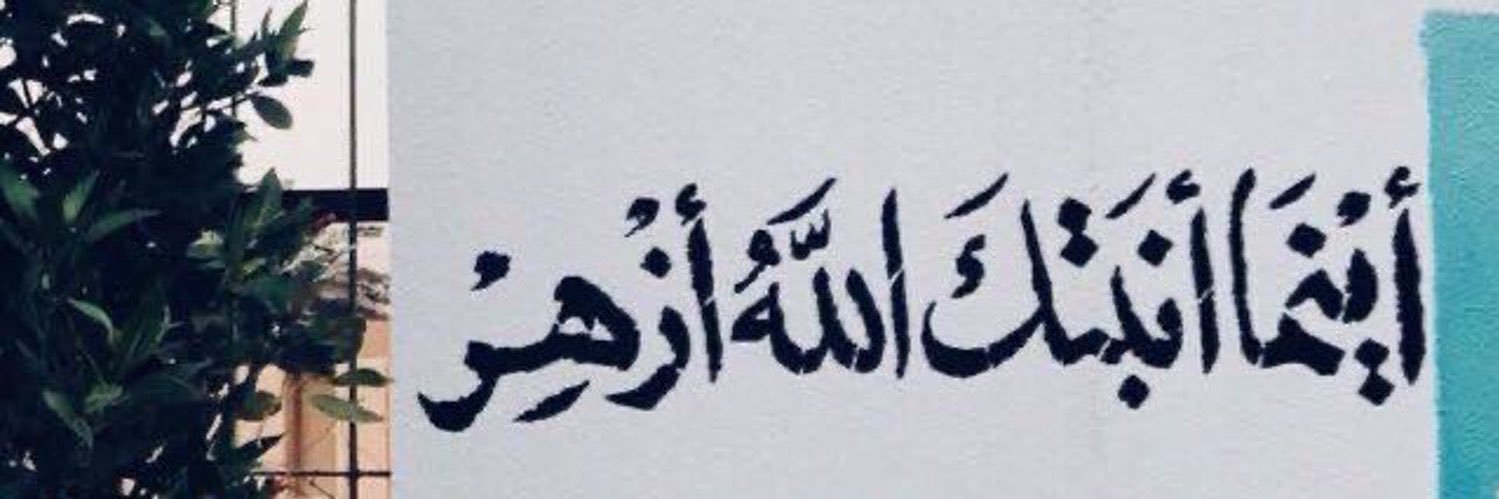 أَيْنَمَا أَنبَتَكَ اللَّهُ أَزْهِرْ